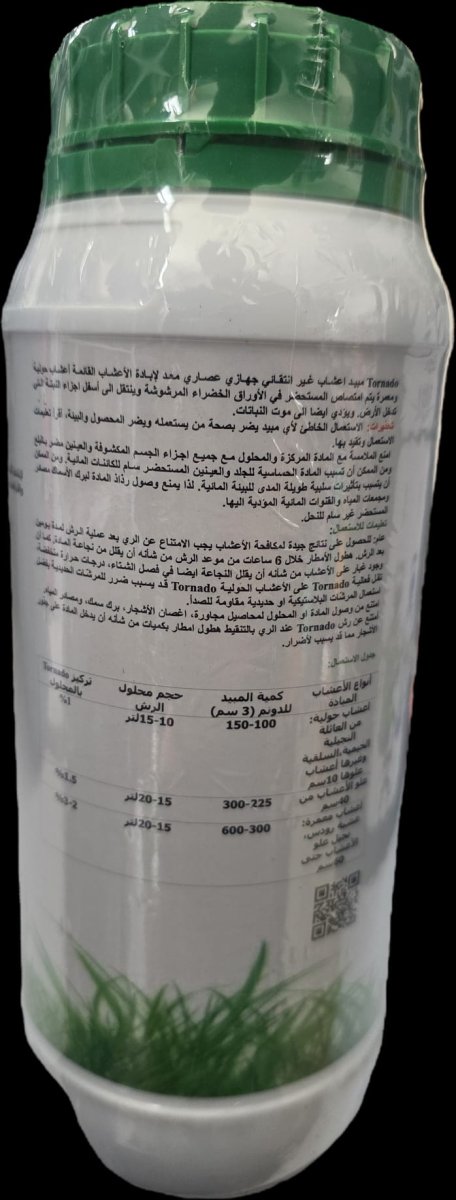 Tornado مبيد اعشاب غير انتقائي جهازي عصاري معد لإبادة الأعشاب القائمة أعشاب حولية
ومعمرة يتم امتصاص المستحضر في الأوراق الخضراء المرشوشة وينتقل الى أسفل اجزاء النبتة التي
تدخل الأرض. ويؤدي ايضا الى موت النباتات.
تحذيرات: الاستعمال الخاطئ لأي مبيد يضر بصحة من يستعمله ويضر المحصول والبيئة، اقرأ تعليمات
الاستعمال وتقيد بها.
امنع الملامسة مع المادة المركزة والمحلول مع جميع اجزاء الجسم المكشوفة والعينين مضر بالبلع
ومن الممكن أن تسبب المادة الحساسية للجلد والعينين المستحضر سام للكائنات المائية. ومن الممكن
أن يتسبب بتأثيرات سلبية طويلة المدى للبيئة المائية. لذا يمنع وصول رذاذ المادة لبرك الأسماك مصادر
ومجمعات المياه والقنوات المائية المؤدية اليها.
المستحضر غير سام للنحل.
تعليمات للاستعمال:
عند للحصول على نتائج جيدة لمكافحة الأعشاب يجب الامتناع عن الري بعد عملية الرش لمدة يومين
بعد الرش. هطول الأمطار خلال 6 ساعات من موعد الرش من شأنه أن يقلل من نجاعة المادة كما أن
وجود غبار على الأعشاب من شأنه أن يقلل النجاعة ايضا في فصل الشتاء، درجات حرارة منخفضة،
تقل فعالية Tornado على الأعشاب الحولية Tornado قد يسبب ضرر للمرشات الحديدية يفضل
استعمال المرشات البلاستيكية او حديدية مقاومة للصدأ.
امتنع من وصول المادة او المحلول لمحاصيل مجاورة، اغصان الأشجار، برك سمك، ومصادر المياه.
امتنع عن رش Tornado عند الري بالتنقيط هطول امطار بكميات من شأنه أن يدخل المادة على جذور
الأشجار مما قد يسبب لأضرار.
جدول الاستعمال:
أنواع الأعشاب المبادة
كمية المبيد للدونم (3 سم)
حجم محلول الرش
تركيز Tornado بالمحلول
أعشاب حولية:
من العائلة
النجيلية
الخيمية،السلقية
وغيرها أعشاب
علوها 10سم
150-100
15-10لتر
1%
علو الأعشاب من
40سم
300-225
20-15لتر
1.5%
أعشاب معمرة:
عشبة رودس،
نجيل علو
الأعشاب حتى
60سم
600-300
20-15لتر
3-2%